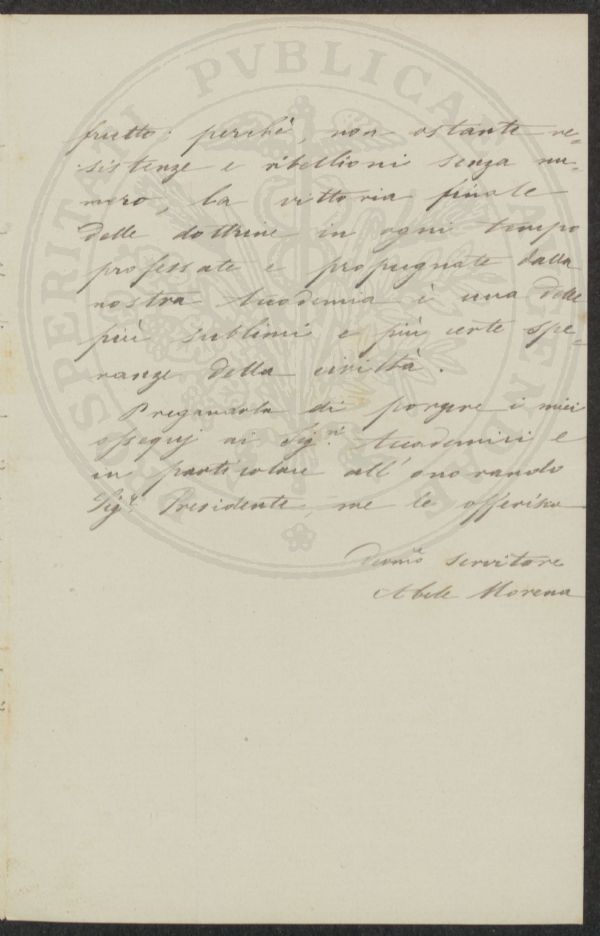 frutto: perchè, non ostante re-
sistenze e ribellioni senza nu-
mero, la vittoria finale
delle dottrine in ogni tempo
professate e propugnate dalla
nostra Accademia è una delle
più sublimi e più certe spe-
ranze della civiltà.
Pregandola di porgere i miei
ossequj ai Sig.ri Accademici e
in particolare all' onorando
Sig.r Presidente, me le offerisco
Devmo servitore
Abele Morena
PVBLICA